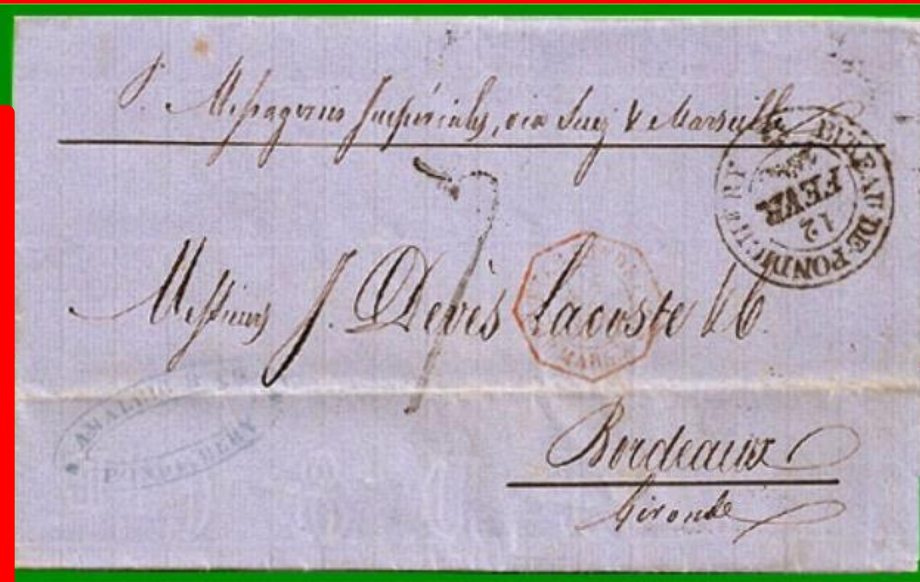 P. Messageries Impériales, via Suez & Marseille
BUREAU DE PONDICHERY
12
FEVR
7
Messieurs J. Devès Lacoste & C.
AMALRIC & Co
PONDICHERY
Bordeaux
Gironde